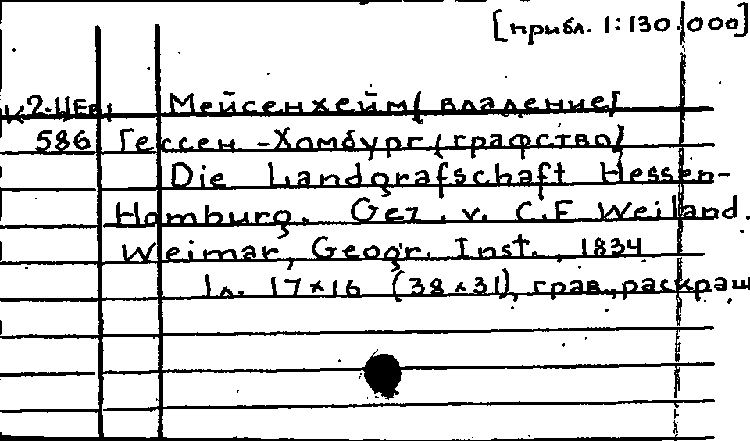 [прибл. 1:130.000]
К2-ЦЕв1 Мейсенхейм [владение]
586 Гессен-Хомбург [графство]
Die Landgrafschaft Hessen-
Homburg. Gez. v. C.F Weiland.
Weimar, Geogr. Inst., 1834
1л. 17×16 (38×31), грав., раскраш